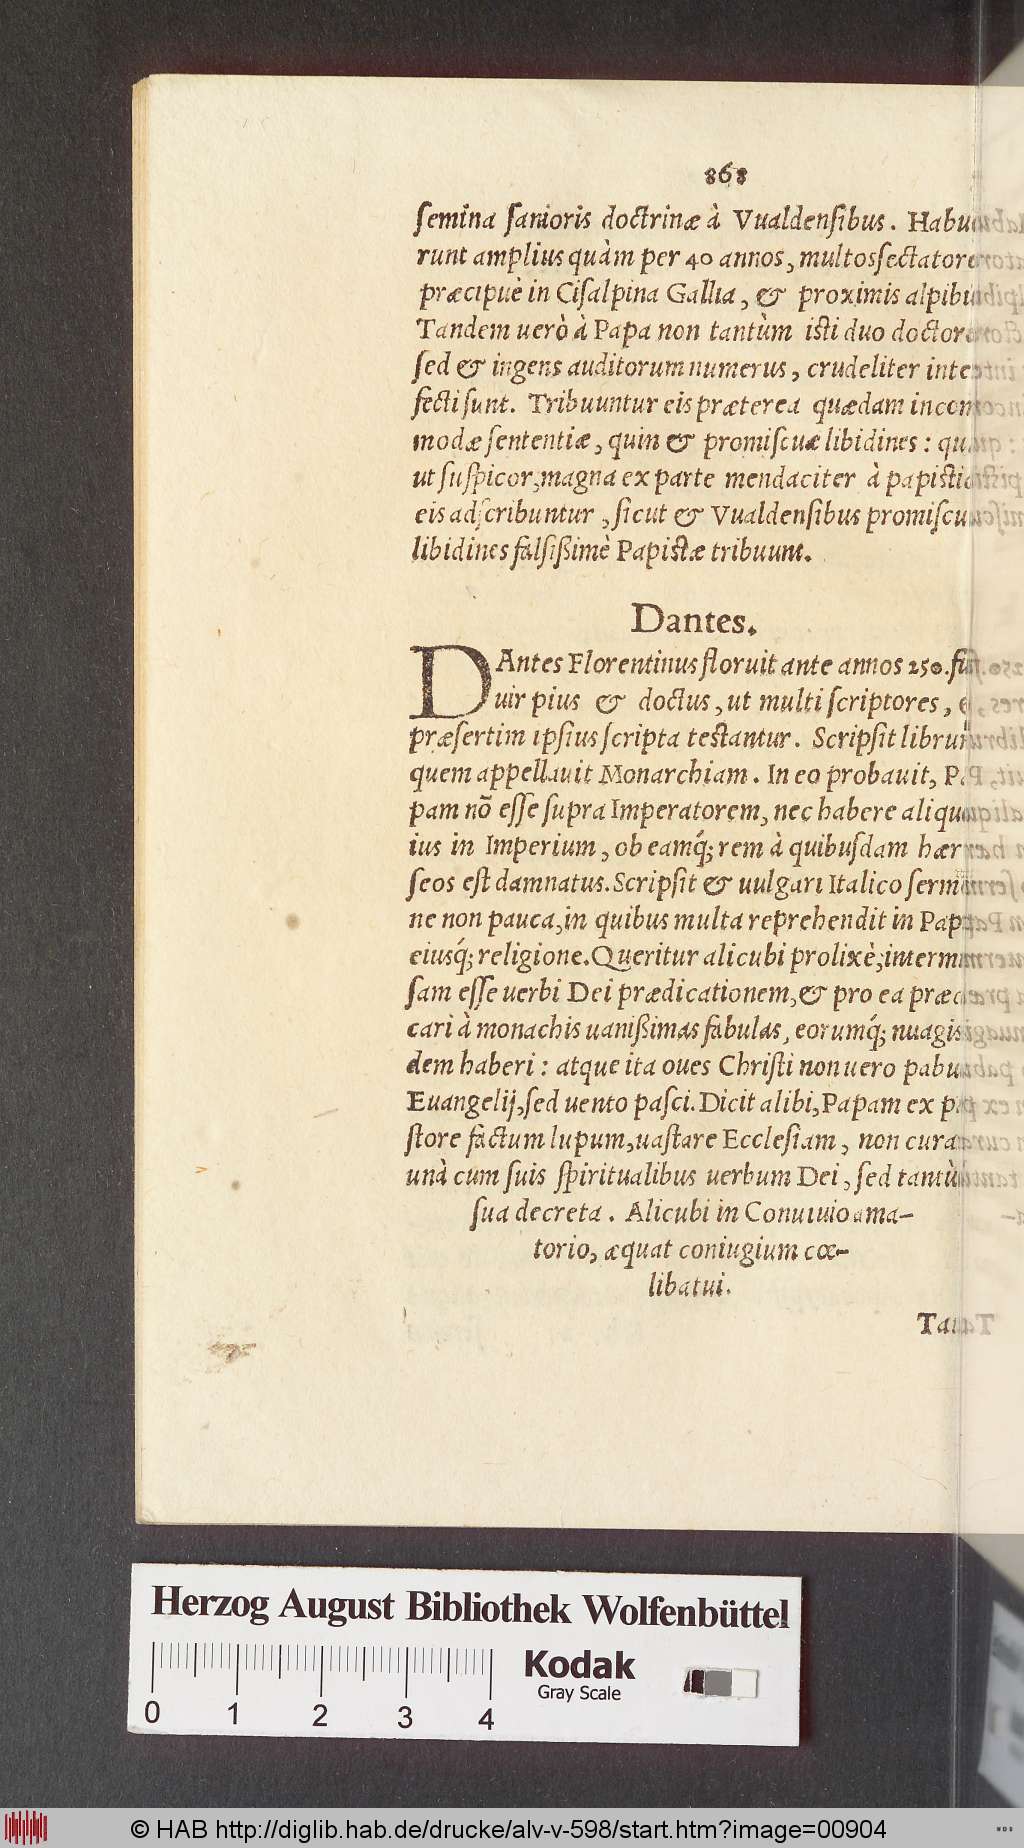 868
semina sanioris doctrinæ à Vualdensibus. Habue
runt amplius quàm per 40 annos, multos sectatores
præcipuè in Cisalpina Gallia, & proximis alpibus
Tandem uerò à Papa non tantùm isti duo doctores
sed & ingens auditorum numerus, crudeliter inter
fecti sunt. Tribuuntur eis præterea quædam incom
modæ sententiæ, quin & promiscuæ libidines:
ut suspicor, magna ex parte mendaciter à papistis
eis adscribuntur, sicut & Vualdensibus promiscuas
libidines falsißimè Papistæ tribuunt.
Dantes.
DAntes Florentinus floruit ante annos 250. fuit
uir pius & doctus, ut multi scriptores, &
præsertim ipsius scripta testantur. Scripsit librum
quem appellauit Monarchiam. In eo probauit, Pa
pam nō esse supra Imperatorem, nec habere aliquod
ius in Imperium, ob eamq́; rem à quibusdam hære
seos est damnatus. Scripsit & uulgari Italico sermo
ne non pauca, in quibus multa reprehendit in Papa
eiusq́; religione. Queritur alicubi prolixè, intermis
sam esse uerbi Dei prædicationem, & pro ea prædi
cari à monachis uanißimas fabulas, eorumq́; nugis fi
dem haberi: atque ita oues Christi non uero pabulo
Euangelij, sed uento pasci. Dicit alibi, Papam ex pa
store factum lupum, uastare Ecclesiam, non curare
unà cum suis spiritualibus uerbum Dei, sed tantùm
sua decreta. Alicubi in Conuiuio ama-
torio, æquat coniugium cœ-
libatui.
Tau
Herzog August Bibliothek Wolfenbüttel
Kodak
Gray Scale
0 1 2 3 4
© HAB http://diglib.hab.de/drucke/alv-v-598/start.htm?image=00904